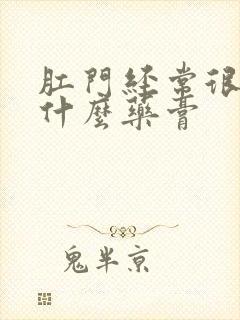 肛門經常很
什麼藥膏
鬼半京